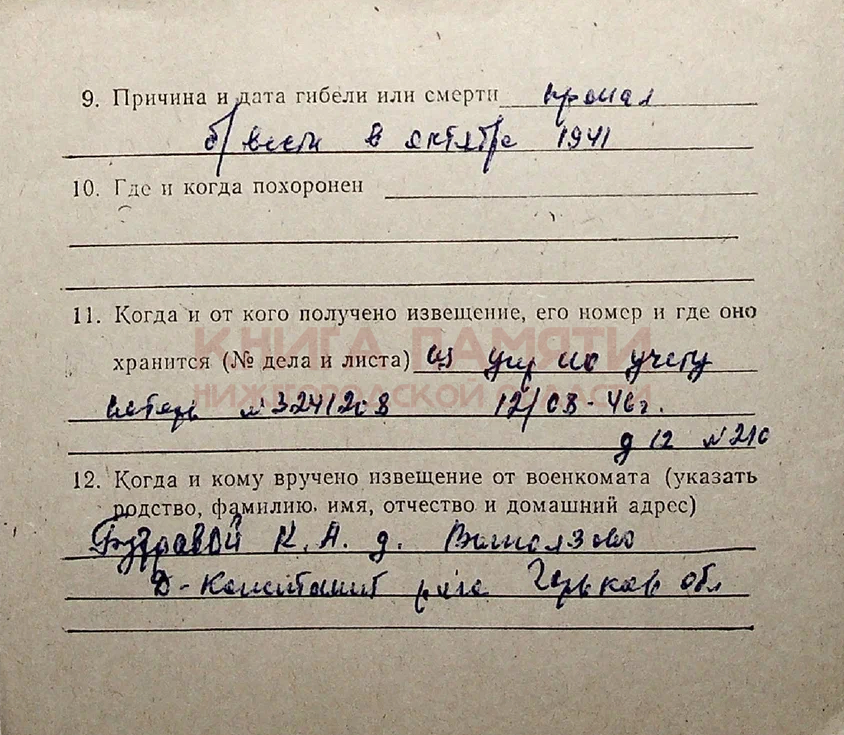 9. Причина и дата гибели или смерти пропал
б/вести в октябре 1941
10. Где и когда похоронен
11. Когда и от кого получено извещение, его номер и где оно
КНИГА ПАМЯТИ
хранится (№ дела и листа) из упр по учету
НИЖЕГОРОДСКОЙ ОБЛАСТИ
потерь №
12/08-46г.
д 12 № 210
12. Когда и кому вручено извещение от военкомата (указать
родство, фамилию, имя, отчество и домашний адрес)
К. А. д.
Д-Константин р-на Горьков обл